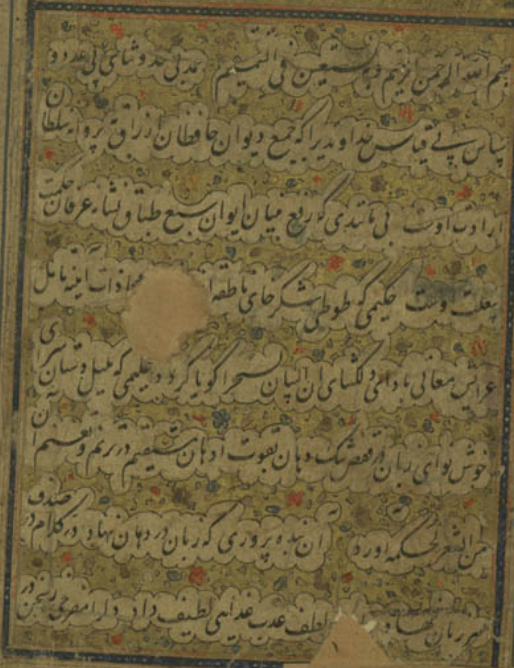 بسم الله الرحمن الرحیم و به نستعین فی التتمیم حمد بی حد و ثنای بی عدد و
سپاس بی قیاس خداوندی را که جمع دیوان حافظان ارزاق پروانه سلطان
ارادت اوست بی مانندی که رفع بنیان ایوان سبع طباق نشانه عرفان حکمت
اوست حکیمی که طوطی شکرخای ناطقه محاذات آینه تامل
عرایس معانی بادای دلگشای ان من البیان لسحرا گویا کرد علیمی که بلبل دستان سرای
خوش نوای زبان در قفص تنگ دهان بقوت اذهان مستقیم در ترنم و تنغیم آن
من الشعر لحکمة آورد آن بنده پروری که زبان در دهان نهاد در کلام در صدف
زبان نهاد لطف عذب غذایی لطیف داد دل را مفرح